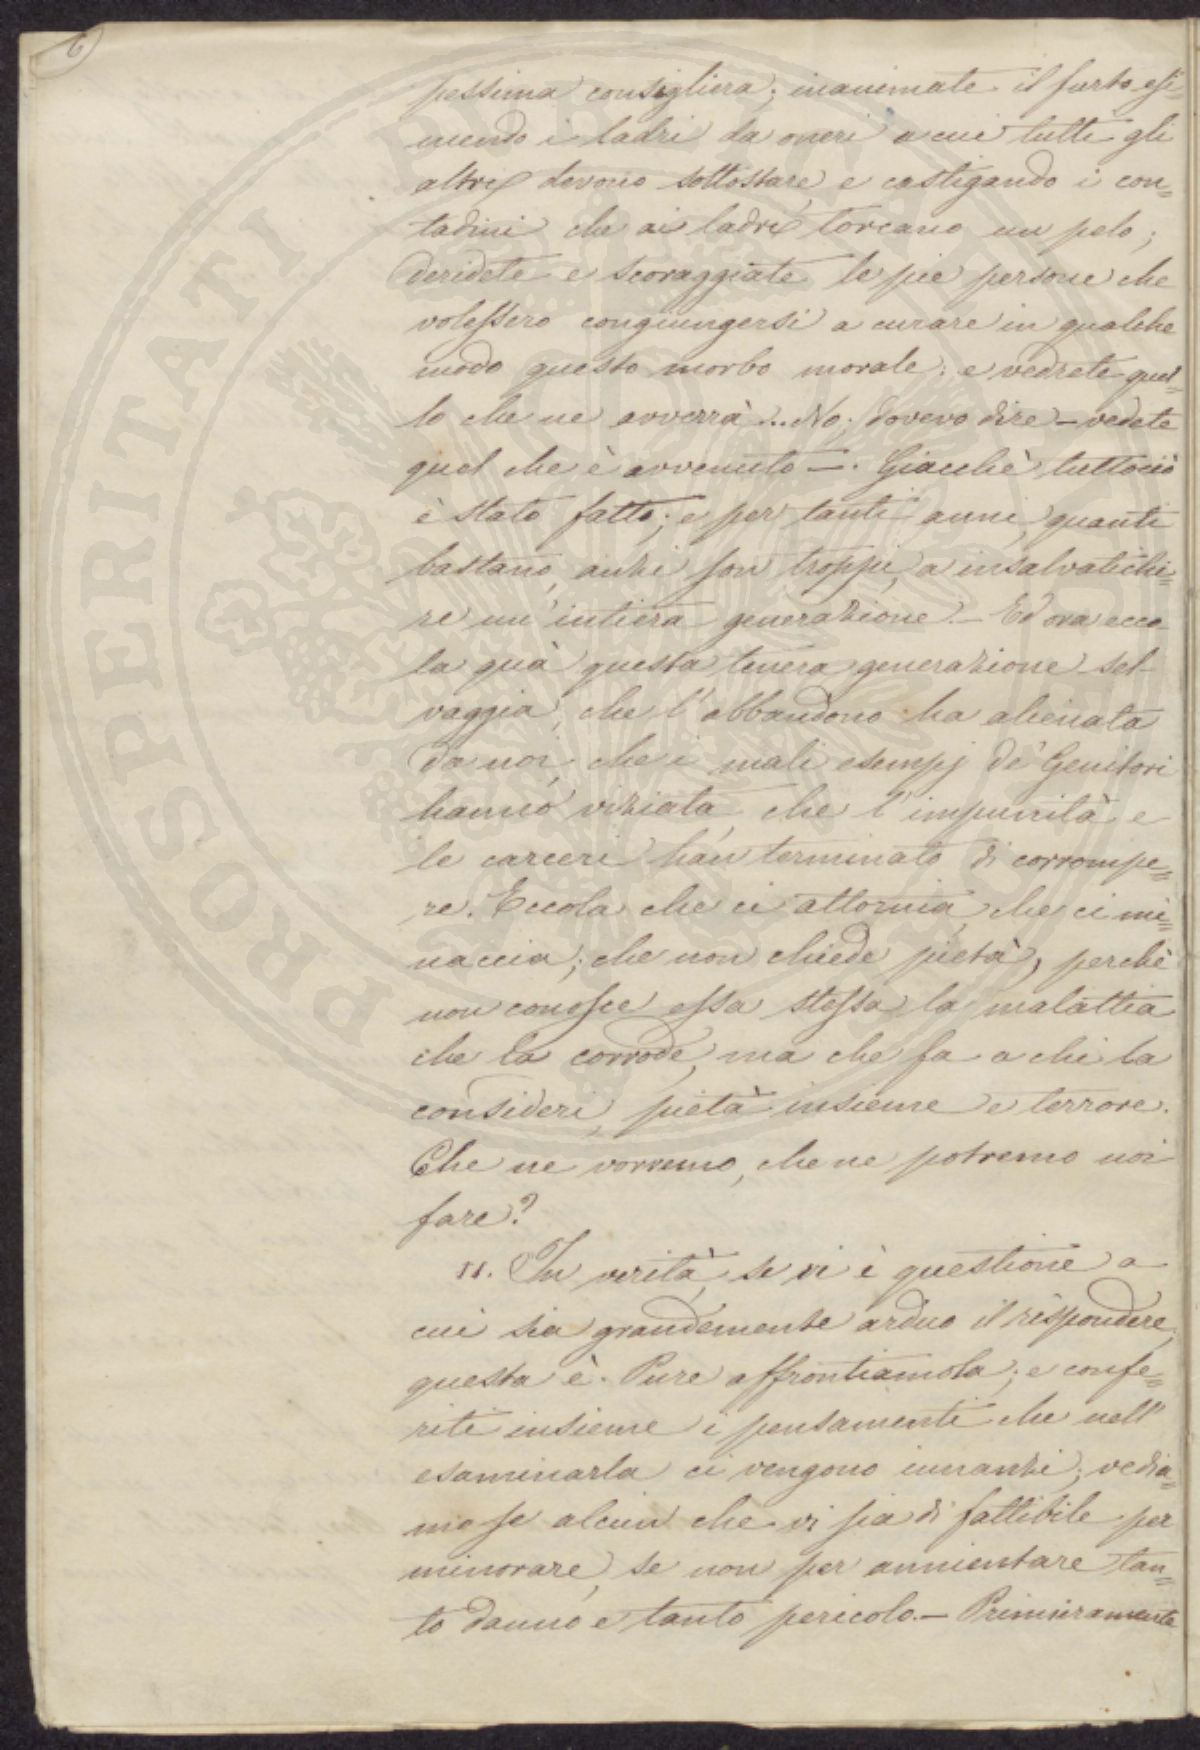 6
pessima consigliera; inanimate il furto esi-
mendo i ladri da oneri a cui tutti gli
altri devono sottostare, e castigando i con-
tadini che ai ladri torcano un pelo;
deridete e scoraggiate le pie persone che
volessero congiungersi a curare in qualche
modo questo morbo morale; e vedrete quel-
lo che ne avverrà... No; dovevo dire — vedete
quel che è avvenuto —. Giacchè tuttociò
è stato fatto; e per tanti anni, quanti
bastano, anzi son troppi, a insalvatichi-
re un'intiera generazione. — Ed ora ecco
la quà questa tenera generazione sel
vaggia, che l'abbandono ha alienata
da noi, che i mali esempj de' Genitori
hanno viziata, che l'impunità e
le carceri han terminato di corrompe-
re. Eccola che ci attornia, che ci mi-
naccia; che non chiede pietà, perchè
non conosce essa stessa la malattia
che la corrode, ma che fa a chi la
consideri, pietà insieme e terrore.
Che ne vorremo, che ne potremo noi
fare?
11. In verità, se vi è questione a
cui sia grandemente arduo il rispondere,
questa è. Pure affrontiamola; e confe-
riti insieme i pensamenti che nell'
esaminarla ci vengono innanzi; vedia-
mo se alcun che vi sia di fattibile per
minorare, se non per annientare tan-
to danno e tanto pericolo. — Primieramente
PROSPERITATI PUBLICAE